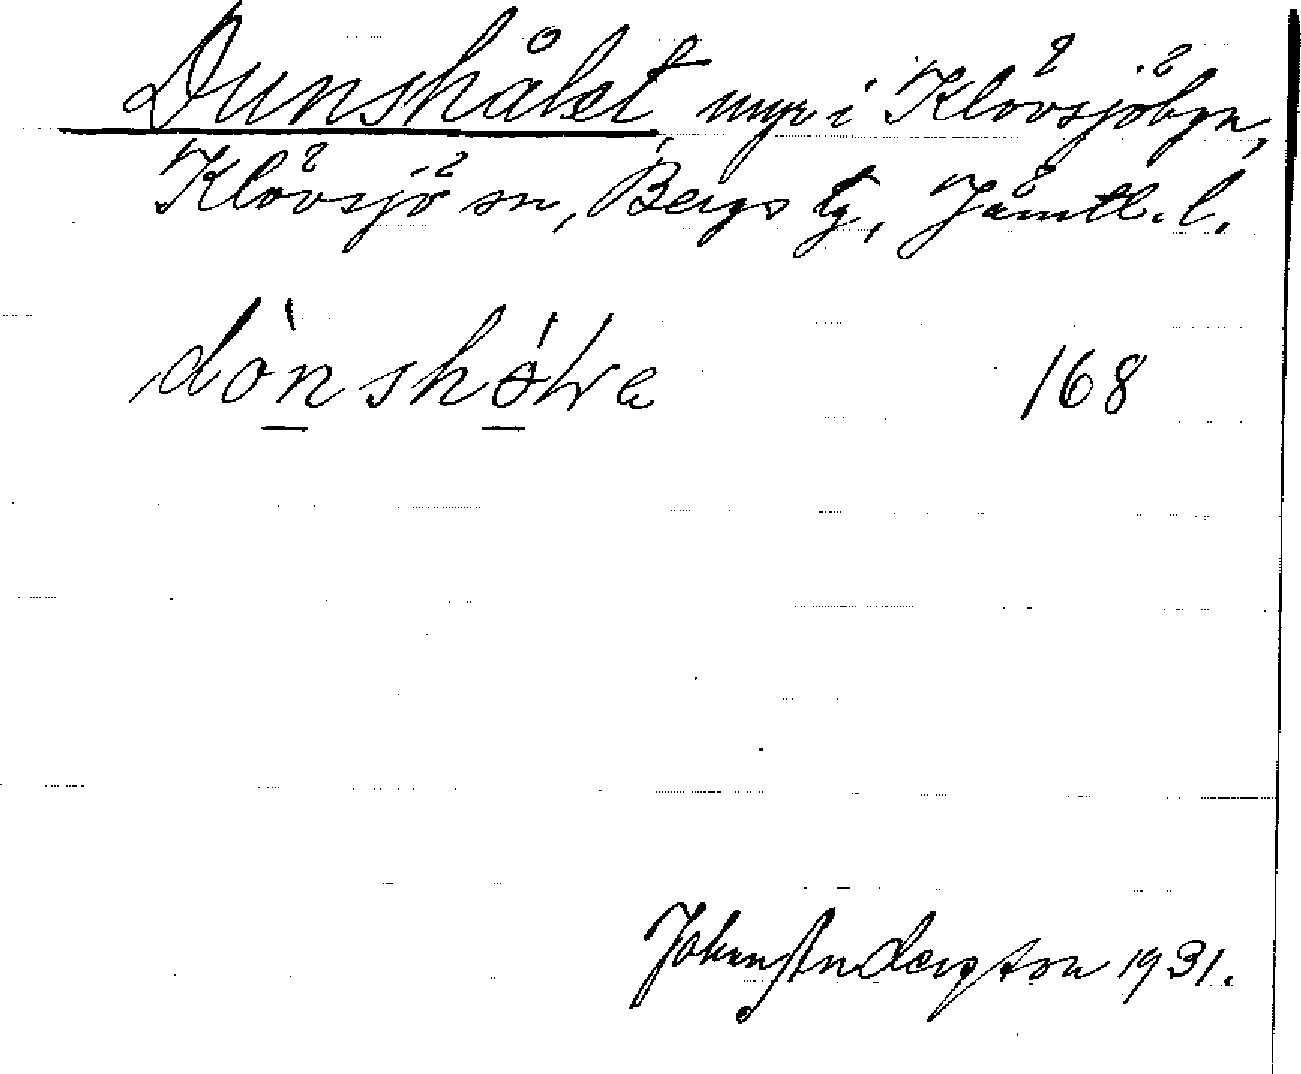 Dunshålet, myr i Klövsjöbyn,
Klövsjö sn, Bergs tg, Jämtl. l.
dònshó̵lre 168
John Andersson 1931.